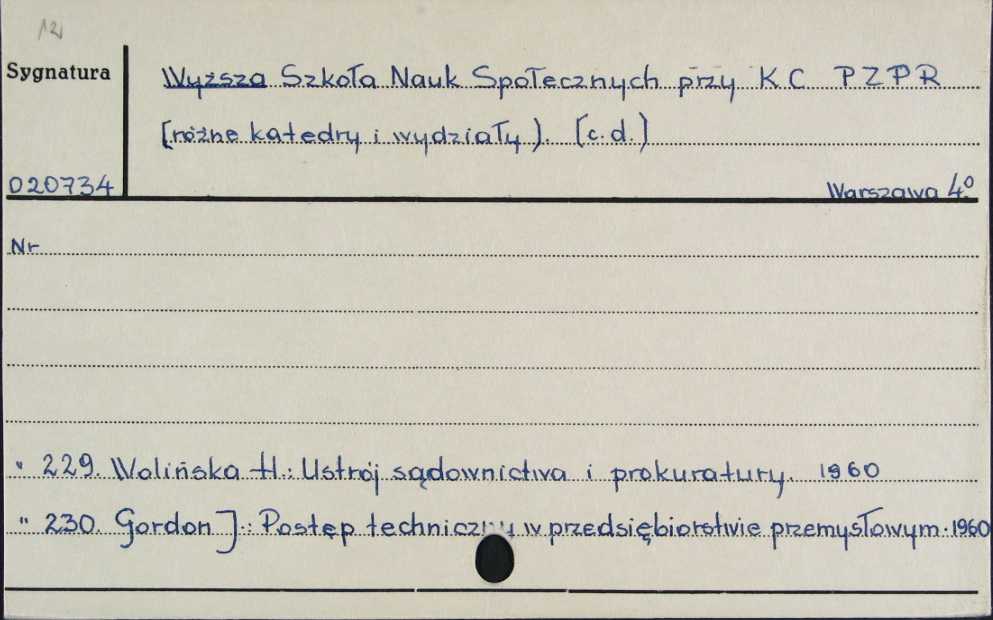 12
Sygnatura
Wyższa Szkoła Nauk Społecznych przy K C P Z P R
(różne katedry i wydziały). (c.d.)
020734
Warszawa 4º
Nr
" 229. Wolińska H.: Ustrój sądownictwa i prokuratury. 1960
" 230. Gordon J.: Postęp techniczny w przedsiębiorstwie przemysłowym. 1960